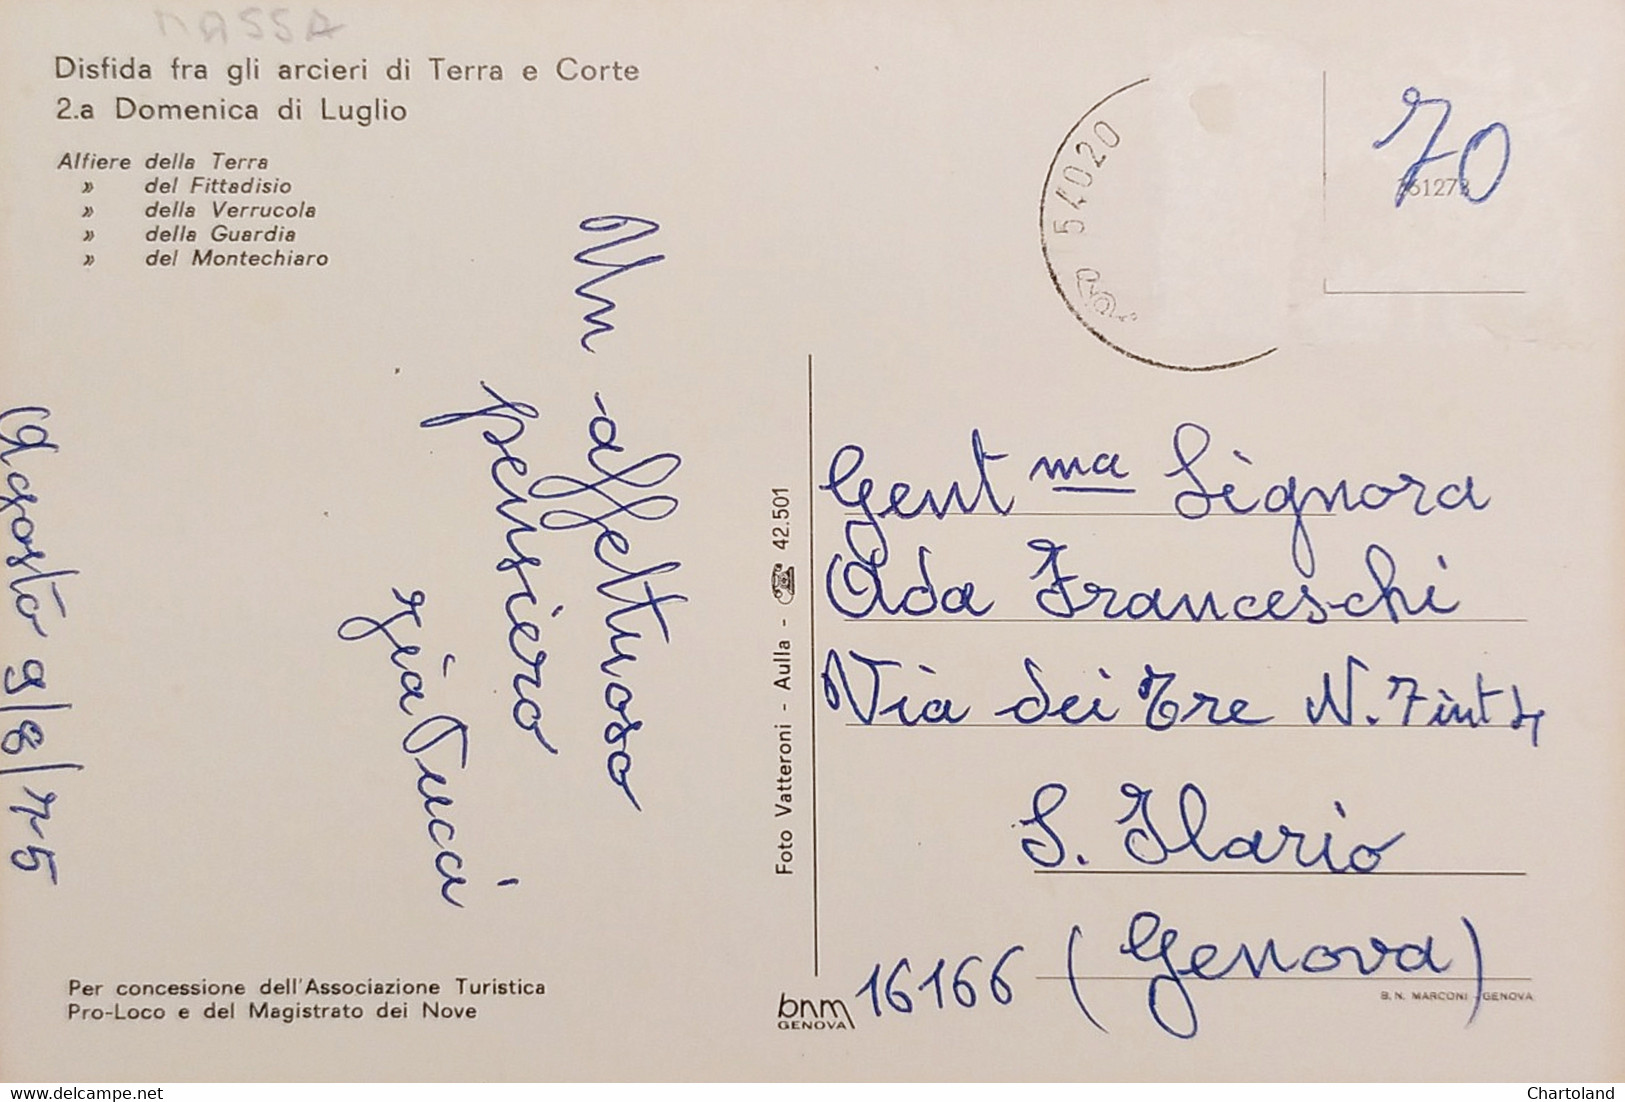 MASSA
Disfida fra gli arcieri di Terra e Corte
2.a Domenica di Luglio
Alfiere della Terra
» del Fittadisio
» della Verrucola
» della Guardia
» del Montechiaro
Un affettuoso
pensiero
Agosto 9/8/75
Per concessione dell'Associazione Turistica
Pro-Loco e del Magistrato dei Nove
Foto Vatteroni - Aulla - ☎ 42.501
bnm
GENOVA
54020
70
Gent ma Signora
Ada Franceschi
Via dei Tre N.
S. Ilario
16166 (Genova)
B. N. MARCONI - GENOVA
Chartoland